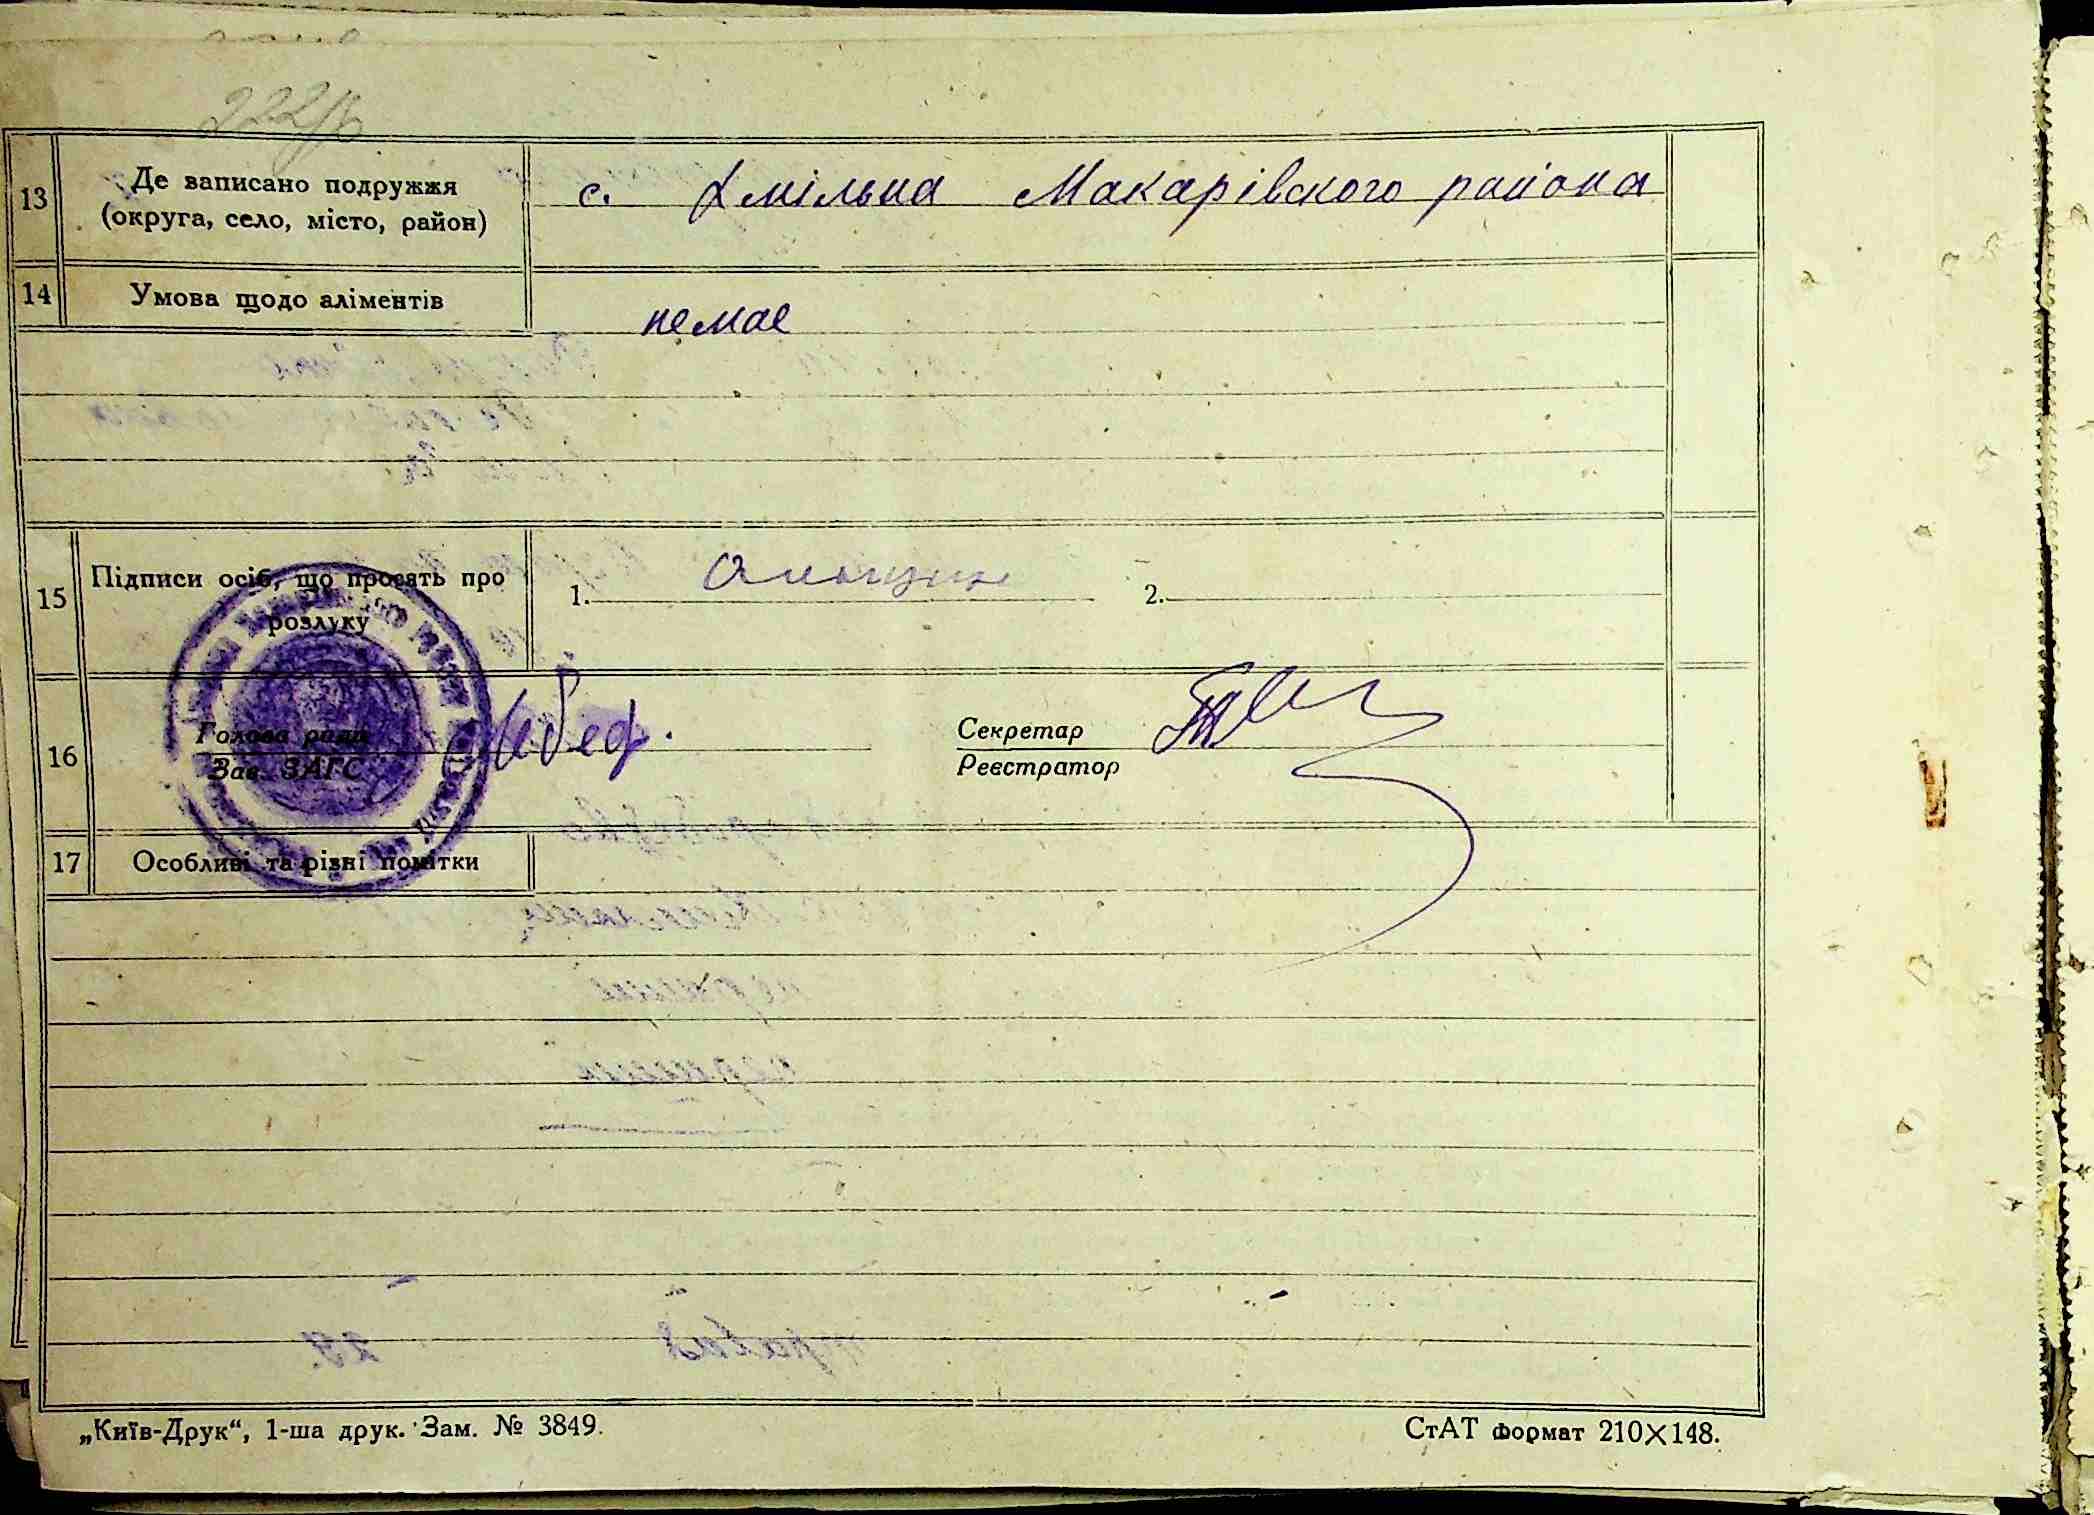 222
13 Де записано подружжя с. Хмільна Макарівского района
(округа, село, місто, район)
14 Умова щодо аліментів немає
15 Підписи осіб, що просять про 1. 2.
розлуку
16 Голова ради Секретар
Зав. ЗАГС Реєстратор
17 Особливі та різні помітки
„Київ-Друк“, 1-ша друк. Зам. № 3849. СтАТ формат 210×148.